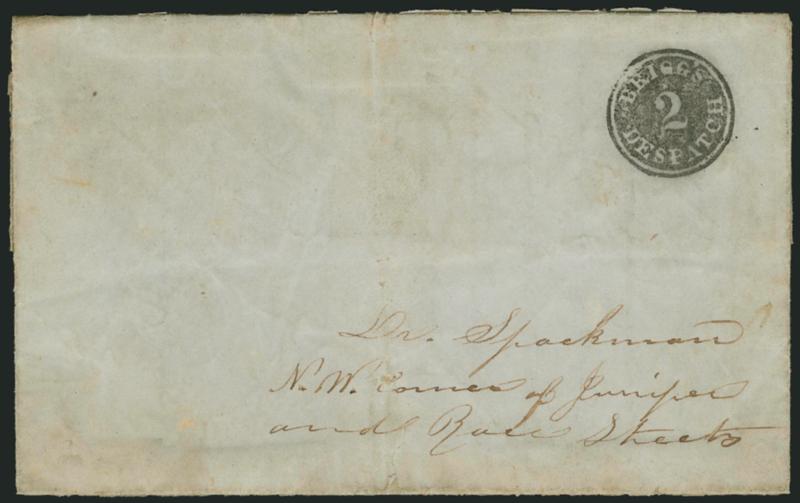 BRIGGS
2
DESPATCH
Dr. Spackman
N.W. Corner of Juniper
and Race Streets